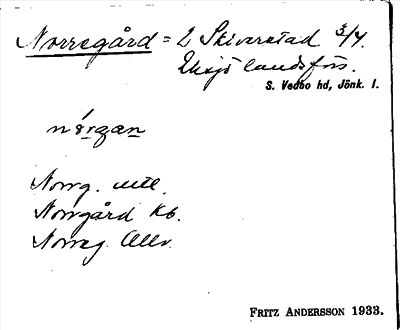 Norregård = 2 Skiverstad 3/4.
Eksjö landsförs.
S. Vedbo hd, Jönk. l.
Norrg. utt.
Norrgård Kb.
Norreg.
FRITZ ANDERSSON 1933.